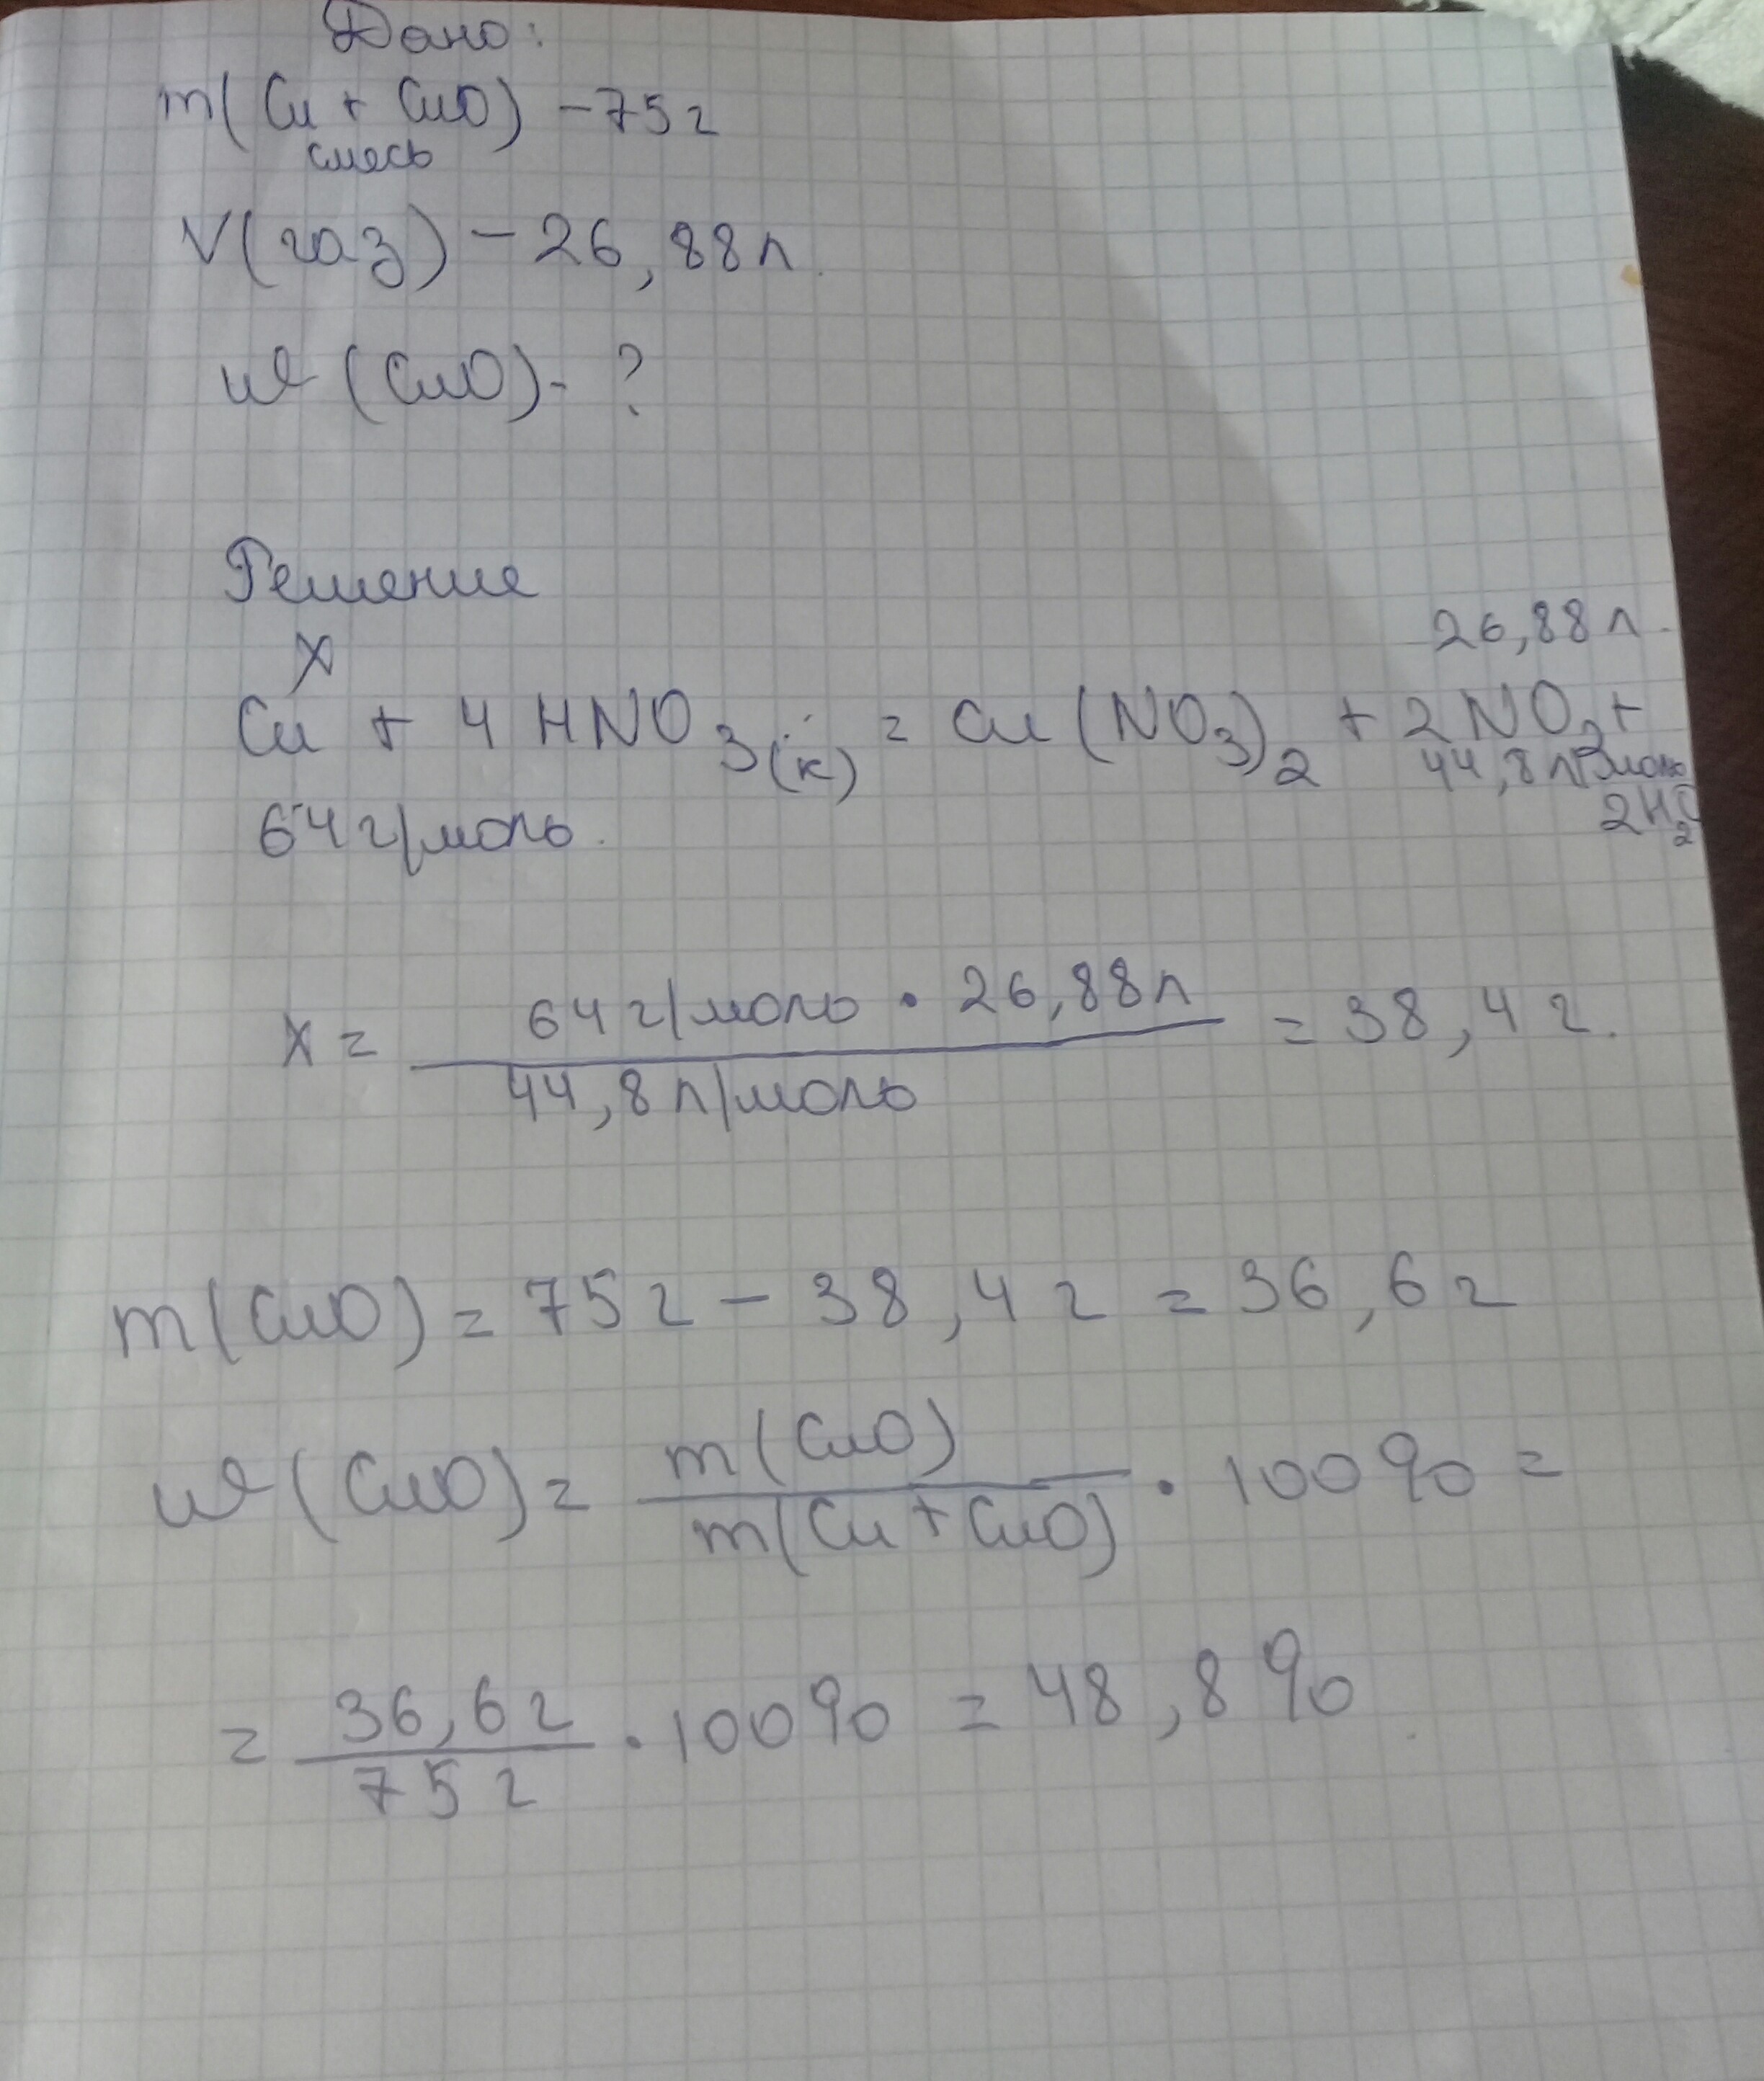 Дано:
m(Cu + CuO) - 75 г
смесь
V(газ) - 26,88 л.
w(CuO) - ?
Решение
26,88 л.
x
Cu + 4HNO3(к) = Cu(NO3)2 + 2NO2 +
44,8 л/моль
2H2O
64 г/моль.
x = 64 г/моль • 26,88 л / 44,8 л/моль = 38,4 г.
m(CuO) = 75 г - 38,4 г = 36,6 г
w(CuO) = m(CuO) / m(Cu + CuO) • 100% =
= 36,6 г / 75 г • 100% = 48,8%